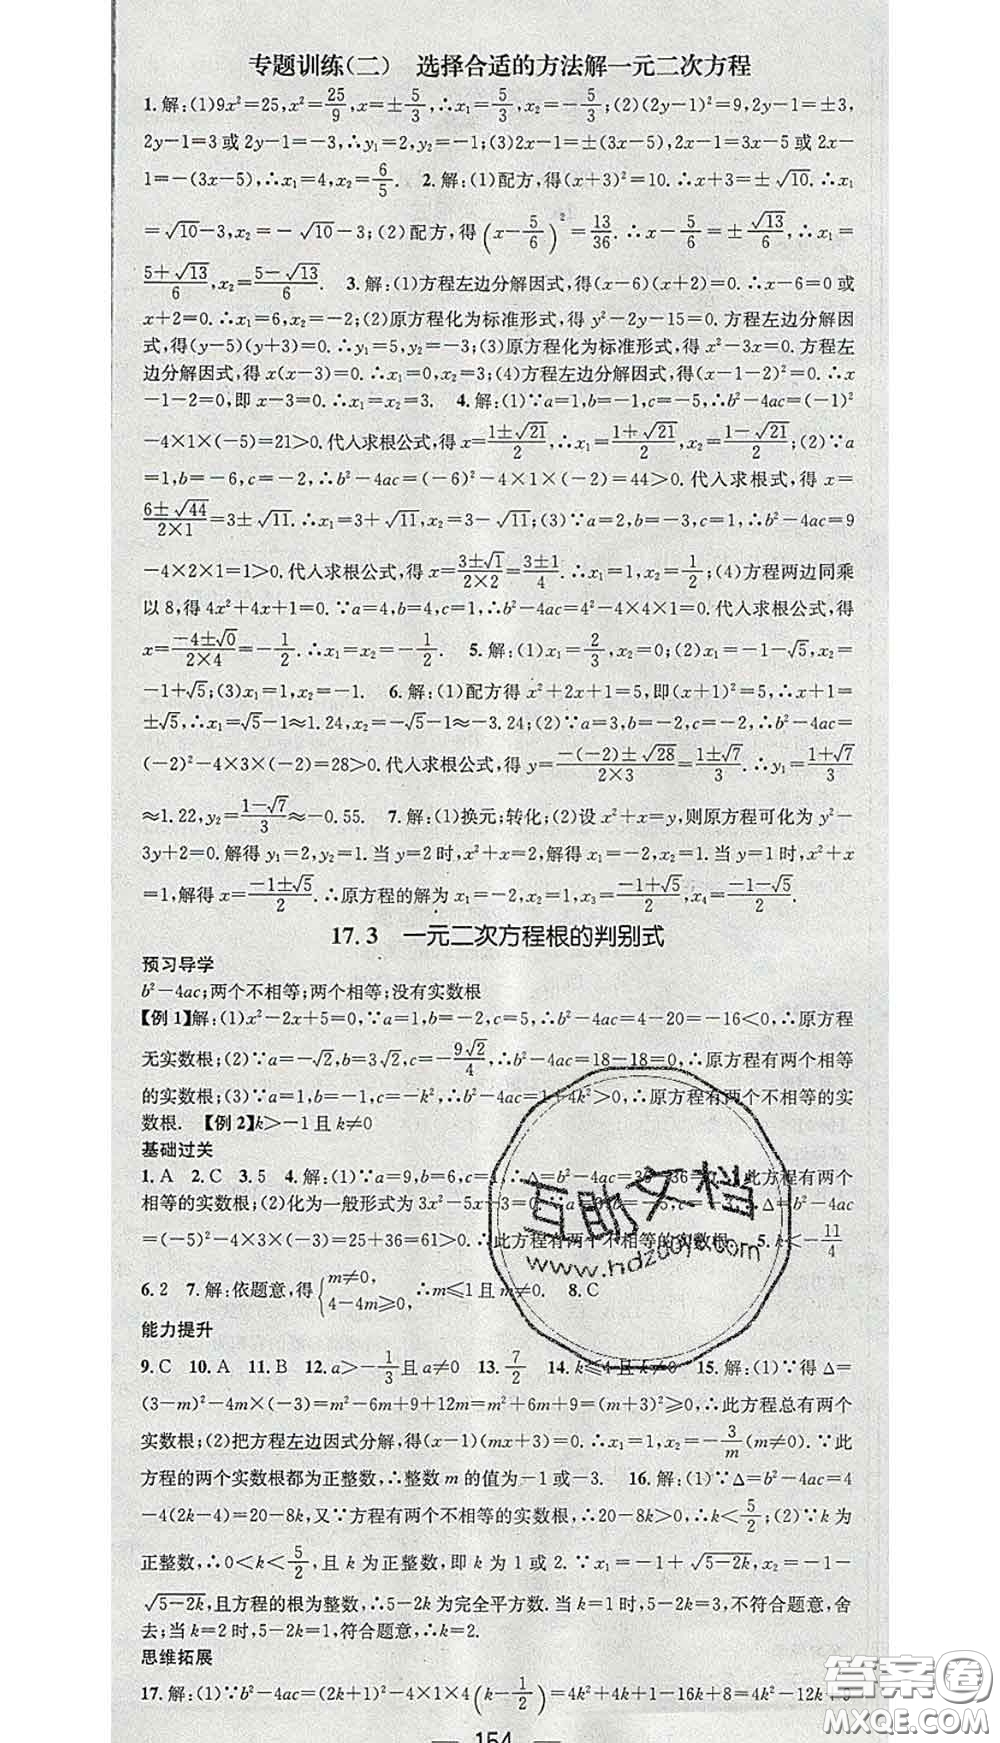 专题训练(二) 选择合适的方法解一元二次方程
1.解:(1)9x²=25,x²=25/9,x=±5/3,∴x₁=5/3,x₂=-5/3;(2)(2y-1)²=9,2y-1=±3,
2y-1=3或2y-1=-3,∴y₁=2,y₂=-1;(3)2x-1=±(3x-5),2x-1=3x-5或2x-
1=-(3x-5),∴x₁=4,x₂=6/5. 2.解:(1)配方,得(x+3)²=10.∴x+3=±√10.∴x₁
=√10-3,x₂=-√10-3;(2)配方,得(x-5/6)²=13/36.∴x-5/6=±√13/6,∴x₁=
(5+√13)/6,x₂=(5-√13)/6. 3.解:(1)方程左边分解因式,得(x-6)(x+2)=0.∴x-6=0或
x+2=0.∴x₁=6,x₂=-2;(2)原方程化为标准形式,得y²-2y-15=0.方程左边分解因
式,得(y-5)(y+3)=0.∴y₁=5,y₂=-3;(3)原方程化为标准形式,得x²-3x=0.方程左
边分解因式,得x(x-3)=0.∴x₁=0,x₂=3;(4)方程左边分解因式,得(x-1-2)²=0.∴x
-1-2=0,即x-3=0.∴x₁=x₂=3. 4.解:(1)∵a=1,b=-1,c=-5,∴b²-4ac=(-1)²
-4×1×(-5)=21>0.代入求根公式,得x=(1±√21)/2,∴x₁=(1+√21)/2,x₂=(1-√21)/2;(2)∵a
=1,b=-6,c=-2,∴b²-4ac=(-6)²-4×1×(-2)=44>0.代入求根式,得x=
(6±√44)/(2×1)=3±√11.∴x₁=3+√11,x₂=3-√11;(3)∵a=2,b=-3,c=1,∴b²-4ac=9
-4×2×1=1>0.代入求根公式,得x=(3±√1)/(2×2)=(3±1)/4.∴x₁=1,x₂=1/2;(4)方程两边同乘
以8,得4x²+4x+1=0.∵a=4,b=4,c=1,∴b²-4ac=4²-4×4×1=0.代入求根公式,得
x=(-4±√0)/(2×4)=-1/2.∴x₁=x₂=-1/2. 5.解:(1)x₁=2/3,x₂=0;(2)x₁=-1-√5,x₂=
-1+√5;(3)x₁=1,x₂=-1. 6.解:(1)配方得x²+2x+1=5,即(x+1)²=5,∴x+1=
±√5,∴x₁=√5-1≈1.24,x₂=-√5-1≈-3.24;(2)∵a=3,b=-2,c=-2,∴b²-4ac=
(-2)²-4×3×(-2)=28>0.代入求根公式,得y=(-(-2)±√28)/(2×3)=(1±√7)/3.∴y₁=(1+√7)/3
≈1.22,y₂=(1-√7)/3≈-0.55. 7.解:(1)换元;转化;(2)设x²+x=y,则原方程可化为y²-
3y+2=0.解得y₁=2,y₂=1.当y=2时,x²+x=2,解得x₁=-2,x₂=1.当y=1时,x²+x
=1,解得x=(-1±√5)/2.∴原方程的解为x₁=-2,x₂=1,x₃=(-1+√5)/2,x₄=(-1-√5)/2.
17.3 一元二次方程根的判别式
预习导学
b²-4ac;两个不相等;两个相等;没有实数根
【例1】解:(1)x²-2x+5=0,∵a=1,b=-2,c=5,∴b²-4ac=4-20=-16<0,∴原方程
无实数根;(2)∵a=-√2,b=3√2,c=-9√2/4,∴b²-4ac=18-18=0,∴原方程有两个相等
的实数根;(3)∵a=1,b=-k,c=-k²,∴b²-4ac=1+4k²>0,∴原方程有两个不相等的实
数根. 【例2】k>-1且k≠0
基础过关
1.A 2.C 3.5 4.解:(1)∵a=9,b=6,c=1,∴Δ=b²-4ac=36-36=0,∴此方程有两个
相等的实数根;(2)化为一般形式为3x²-5x-3=0,∵a=3,b=-5,c=-3,∴Δ=b²-4ac
=(-5)²-4×3×(-3)=25+36=61>0.∴此方程有两个不相等的实数根. 5.k<-11/4
6.2 7.解:依题意,得{m≠0, 4-4m≥0, ∴m≤1且m≠0. 8.C
能力提升
9.C 10.A 11.B 12.a>-1/3且a≠0 13.7/2 14.k≤4且k≠0 15.解:(1)∵得Δ=
(3-m)²-4m×(-3)=m²-6m+9+12m=m²+6m+9=(m+3)²≥0,∴此方程总有两个
实数根;(2)把方程左边因式分解,得(x-1)(mx+3)=0.∴x₁=1,x₂=-3/m(m≠0).∵此
方程的两个实数根都为正整数,∴整数m的值为-1或-3. 16.解:(1)∵Δ=b²-4ac=4
-4(2k-4)=20-8k,又∵方程有两个不相等的实数根,∴20-8k>0,∴k<5/2;(2)∵k为
正整数,∴0<k<5/2,且k为正整数,即k为1或2.∵x₁=-1+√(5-2k),x₂=-1-
√(5-2k),且方程的根为整数,∴5-2k为完全平方数.当k=1时,5-2k=3,不符合题意,舍
去;当k=2时,5-2k=1,符合题意,∴k=2.
思维拓展
17.解:(1)∵b²-4ac=(2k+1)²-4×1×4(k-1/2)=4k²+4k+1-16k+8=4k²-12k+9
— 154 —
互助文档
www.hdzuoye.com
答案圈
MXQE.COM